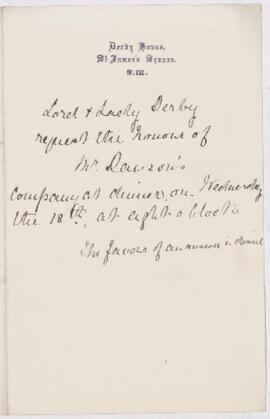 Derby House,
St James's Square,
S.W.
Lord & Lady Derby
request the honour of
Mr. Dawson's
company at dinner, on Wednesday
the 18th, at eight o'clock
The favour of an answer is desired